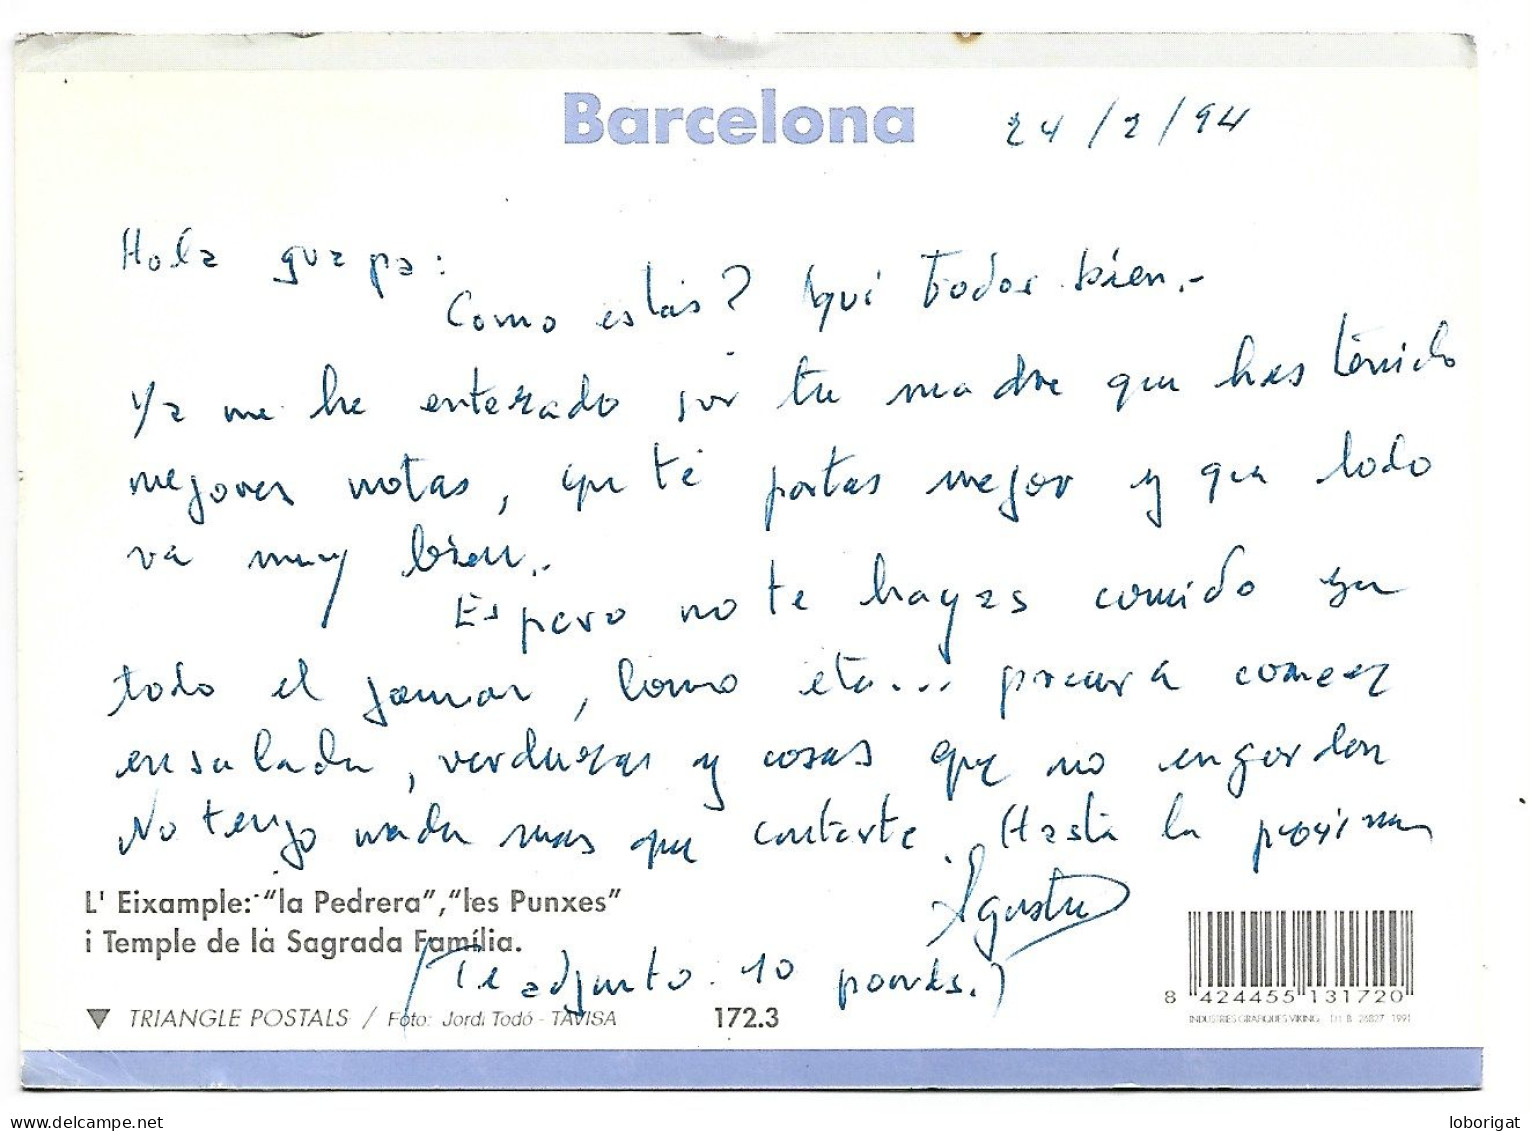 Barcelona
24/2/94
Hola guapa:
Como estás? Aquí todos bien.-
Ya me he enterado por tu madre que has tenido
mejores notas, que te portas mejor y que todo
va muy bien.-
Espero no te hayas comido ya
todo el jamon, lomo etc... procura comer
ensalada, verduras y cosas que no engorden
No tengo nada mas que contarte. Hasta la proxima
Agustin
(Te adjunto 10 pounds.)
L' Eixample: "la Pedrera", "les Punxes"
i Temple de la Sagrada Família.
TRIANGLE POSTALS / Foto: Jordi Todó - TAVISA
172.3
8 424455 131720
INDUSTRIES GRAFIQUES VIKING D.L. B. 26827 1991
loborigat